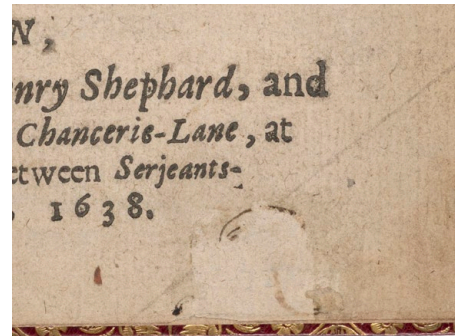 N,
nry Shephard, and
Chancerie-Lane, at
etween Serjeants-
1638.